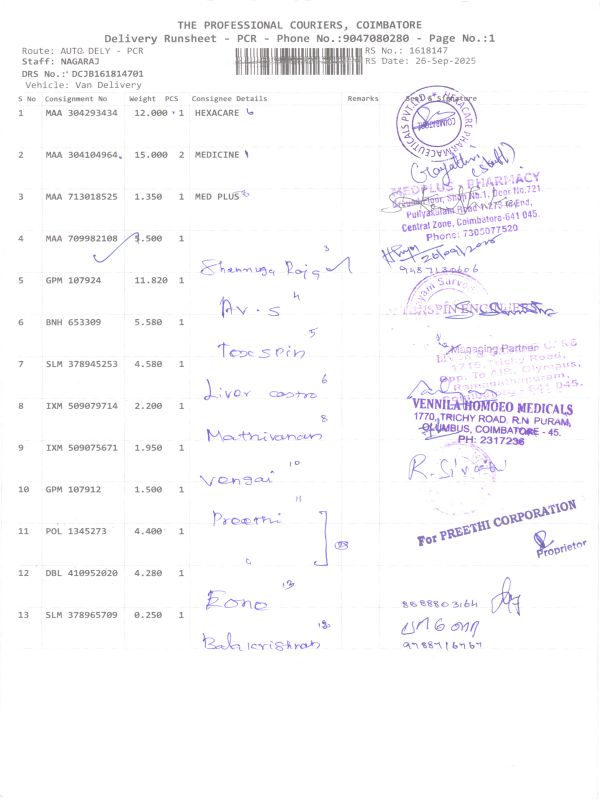 THE PROFESSIONAL COURIERS, COIMBATORE
Delivery Runsheet - PCR - Phone No.:9047080280 - Page No.:1
Route: AUTO DELY - PCR
RS No.: 1618147
Staff: NAGARAJ
RS Date: 26-Sep-2025
DRS No.: DCJB161814701
Vehicle: Van Delivery
S No Consignment No Weight PCS Consignee Details Remarks Seal & Signature
1 MAA 304293434 12.000 1 HEXACARE 6
HEXACARE PHARMACEUTICALS PVT.
COIMBATORE
2 MAA 304104964 15.000 2 MEDICINE 1
Gayathri (Staff)
3 MAA 713018525 1.350 1 MED PLUS
MEDPLUS PHARMACY
Ground Floor, Shop No.1, Door No.721,
Puliyakulam Road
Central Zone, Coimbatore-641 045.
Phone: 7305077520
4 MAA 709982108 5.500 1
26/09/2025
3
Shanmuga Raja
5 GPM 107924 11.820 1
4
AV.S
6 BNH 653309 5.580 1
5
Texspin
Managing Partner
7 SLM 378945253 4.580 1
1715, Trichy Road,
Opp. To AIS, Olympus,
Ramanathapuram,
6
Liver castro
8 IXM 509079714 2.200 1
VENNILA HOMOEO MEDICALS
1770, TRICHY ROAD, R.N PURAM,
OLUMBUS, COIMBATORE - 45.
PH: 2317236
8
Mathivanan
9 IXM 509075671 1.950 1
10
Vengai
R. Sivan
10 GPM 107912 1.500 1
11
Preethi
11 POL 1345273 4.400 1
For PREETHI CORPORATION
Proprietor
12 DBL 410952020 4.280 1
13
Eono
8888803164
13 SLM 378965709 0.250 1
12
Balakrishnan
9788716767